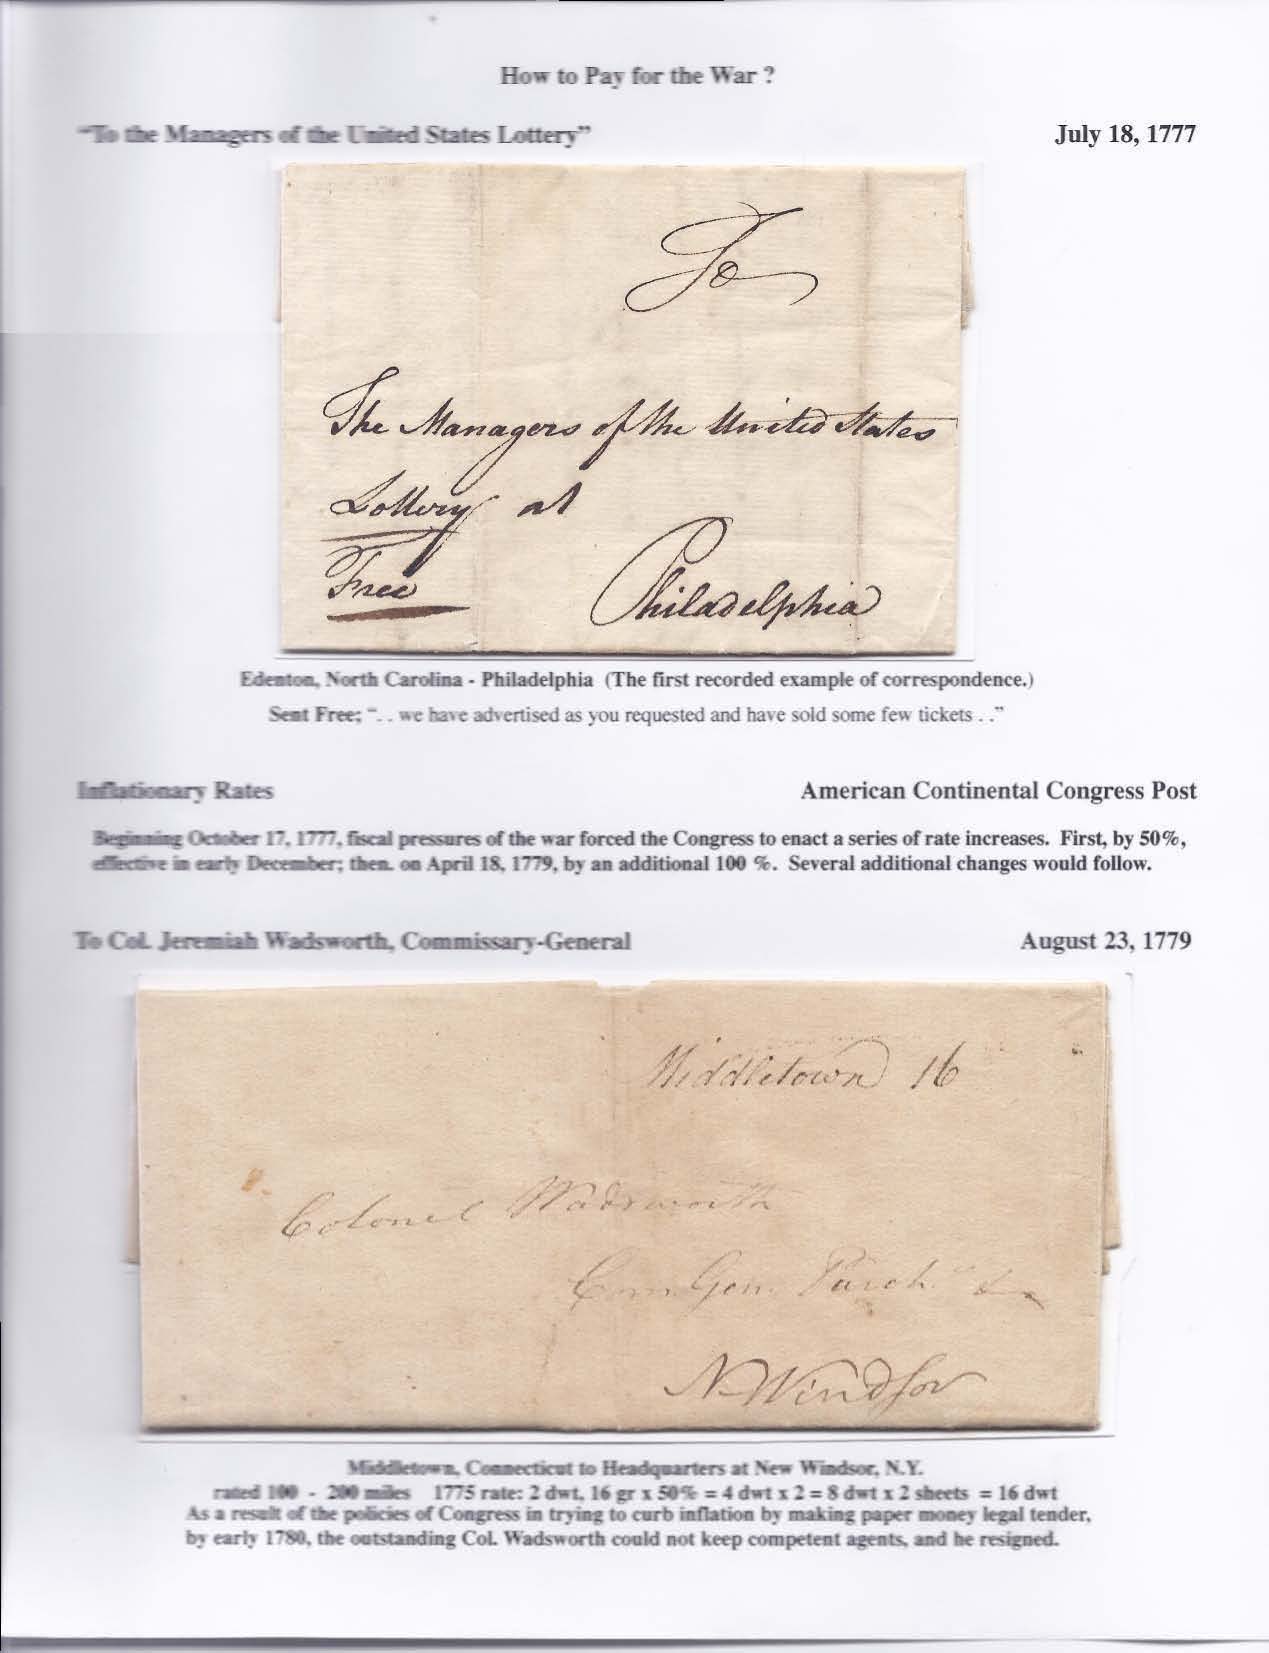 How to Pay for the War ?
"To the Managers of the United States Lottery" July 18, 1777
To
The Managers of the United States
Lottery at
Free Philadelphia
Edenton, North Carolina - Philadelphia (The first recorded example of correspondence.)
Sent Free; ". . we have advertised as you requested and have sold some few tickets . ."
Inflationary Rates American Continental Congress Post
Beginning October 17, 1777, fiscal pressures of the war forced the Congress to enact a series of rate increases. First, by 50%,
effective in early December; then. on April 18, 1779, by an additional 100 %. Several additional changes would follow.
To Col. Jeremiah Wadsworth, Commissary-General August 23, 1779
Middletown 16
Colonel Wadsworth
Com. Gen. Purch.
N. Windsor
Middletown, Connecticut to Headquarters at New Windsor, N.Y.
rated 100 - 200 miles 1775 rate: 2 dwt, 16 gr x 50% = 4 dwt x 2 = 8 dwt x 2 sheets = 16 dwt
As a result of the policies of Congress in trying to curb inflation by making paper money legal tender,
by early 1780, the outstanding Col. Wadsworth could not keep competent agents, and he resigned.